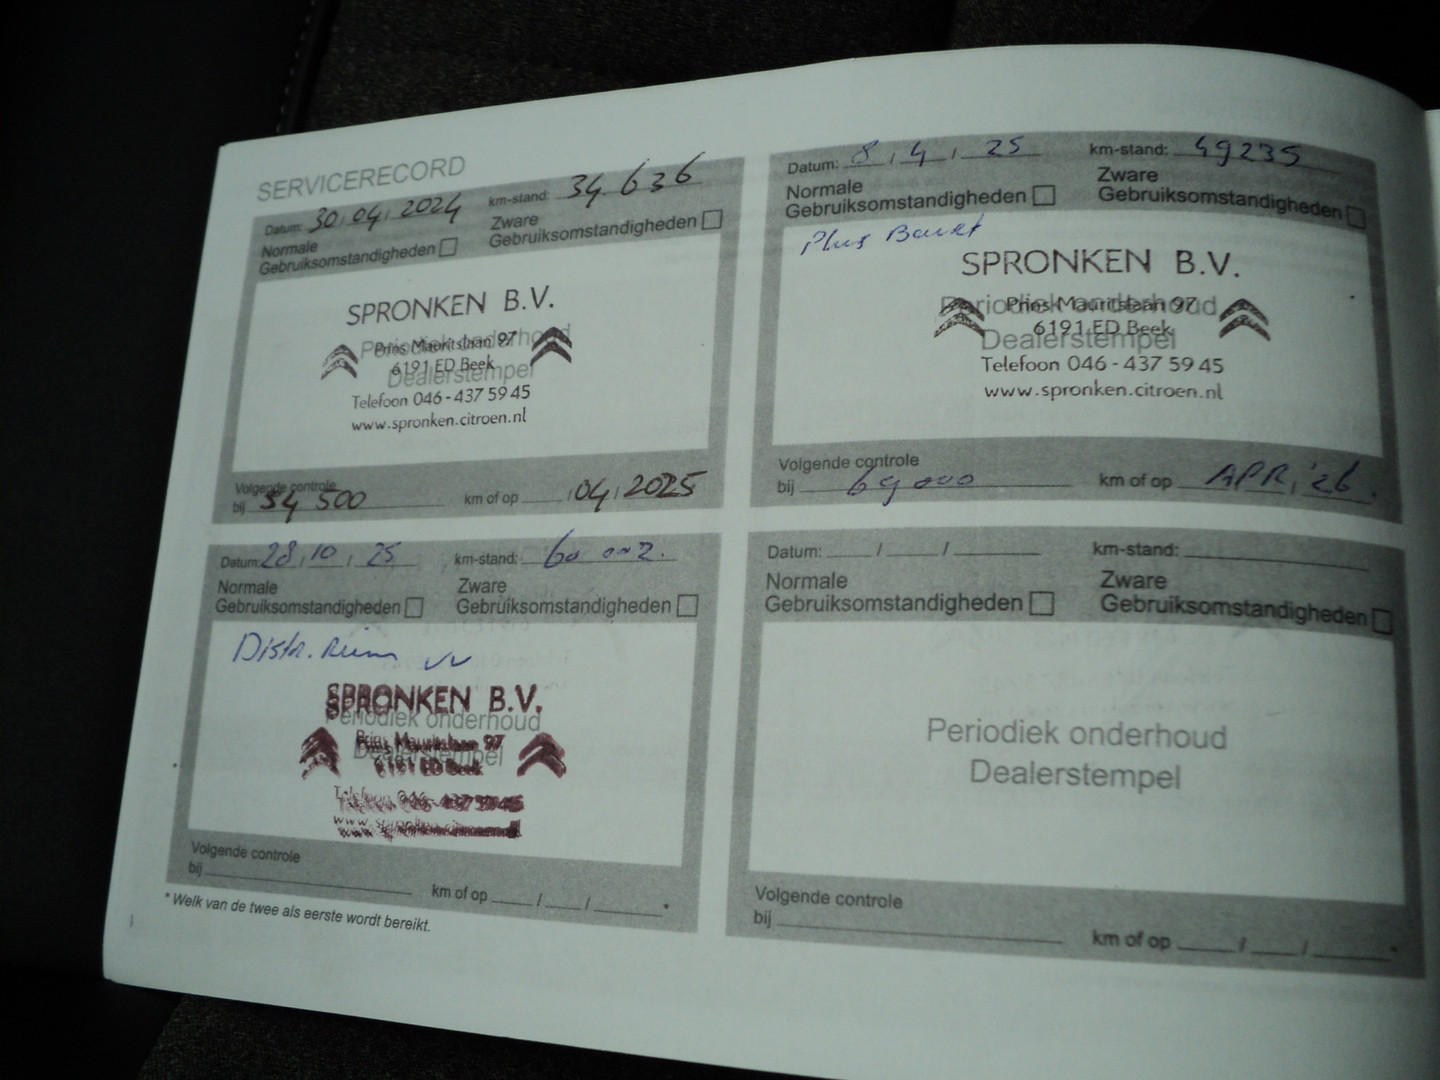 SERVICERECORD
Datum: 30 / 04 / 2024 km-stand: 34.636
Normale
Gebruiksomstandigheden
Zware
Gebruiksomstandigheden
SPRONKEN B.V.
Periodiek onderhoud
Prins Mauritslaan 97
6191 ED Beek
Dealerstempel
Telefoon 046 - 437 59 45
www.spronken.citroen.nl
Volgende controle
bij 54 500 km of op / 04 / 2025
Datum: 8 / 4 / 25 km-stand: 49235
Normale
Gebruiksomstandigheden
Zware
Gebruiksomstandigheden
Plus
SPRONKEN B.V.
Periodiek onderhoud
Prins Mauritslaan 97
6191 ED Beek
Dealerstempel
Telefoon 046 - 437 59 45
www.spronken.citroen.nl
Volgende controle
bij 69000 km of op APR / '26
Datum: 28 / 10 / 25 km-stand: 60 002.
Normale
Gebruiksomstandigheden
Zware
Gebruiksomstandigheden
Distr. Riem vv
SPRONKEN B.V.
Periodiek onderhoud
Prins Mauritslaan 97
Dealerstempel
6191 ED Beek
Telefoon 046 - 437 59 45
Volgende controle
bij km of op / / *
* Welk van de twee als eerste wordt bereikt.
Datum: / / km-stand:
Normale
Gebruiksomstandigheden
Zware
Gebruiksomstandigheden
Periodiek onderhoud
Dealerstempel
Volgende controle
bij km of op / / *